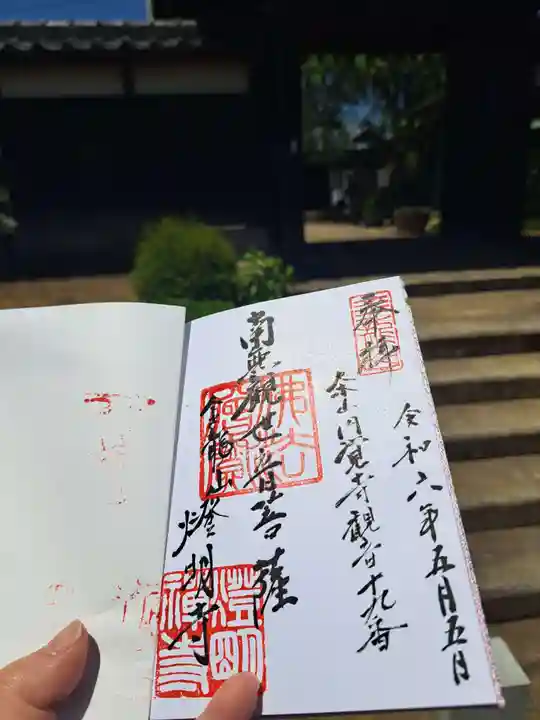 令和六年五月五日
奉拝
円覚寺観音十九番
南無観世音菩薩
山燈明寺
佛法
僧寶
燈明
禅寺